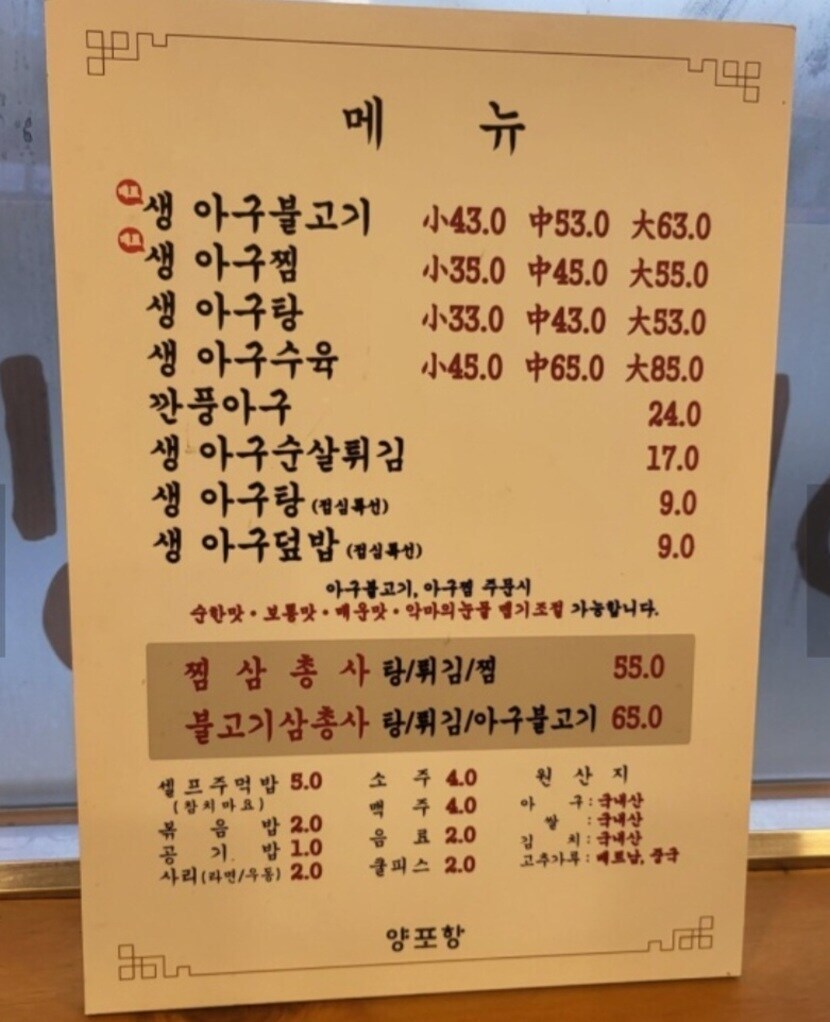 메 뉴
대표 생 아구불고기 小43.0 中53.0 大63.0
대표 생 아구찜 小35.0 中45.0 大55.0
생 아구탕 小33.0 中43.0 大53.0
생 아구수육 小45.0 中65.0 大85.0
깐풍아구 24.0
생 아구순살튀김 17.0
생 아구탕 (점심특선) 9.0
생 아구덮밥 (점심특선) 9.0
아구불고기, 아구찜 주문시
순한맛 • 보통맛 • 매운맛 • 악마의눈물 맵기조절 가능합니다.
찜 삼 총 사 탕/튀김/찜 55.0
불고기삼총사 탕/튀김/아구불고기 65.0
셀프주먹밥 5.0
(참치마요)
볶 음 밥 2.0
공 기 밥 1.0
사리(라면/우동) 2.0
소 주 4.0
맥 주 4.0
음 료 2.0
쿨피스 2.0
원 산 지
아 구 : 국내산
쌀 : 국내산
김 치 : 국내산
고추가루 : 베트남, 중국
양포항